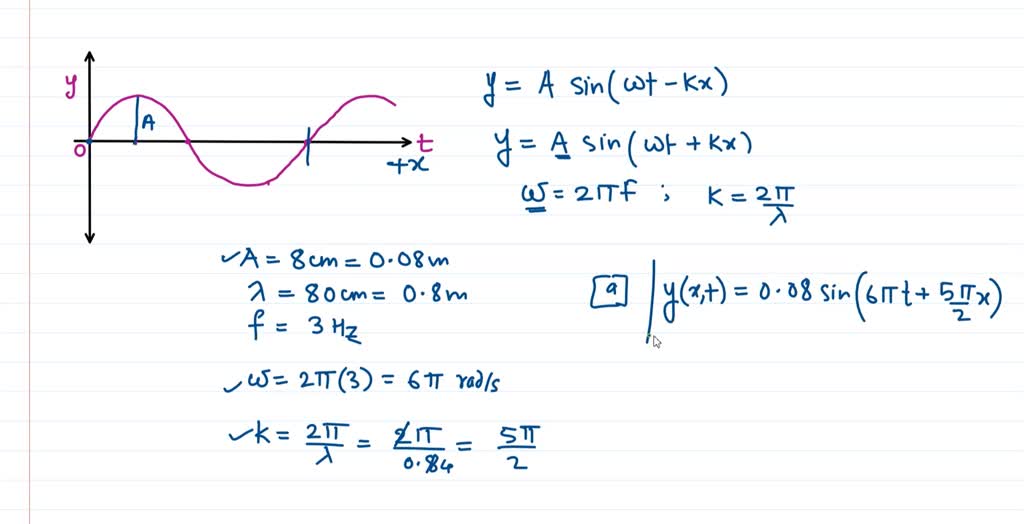 y
A
O
t
+x
y = A sin(ωt − kx)
y = A sin(ωt + kx)
ω = 2πf ; k = 2π/λ
✓A = 8cm = 0.08m
λ = 80cm = 0.8m
f = 3 Hz
a y(x,t) = 0.08 sin(6πt + 5π/2 x)
✓ω = 2π(3) = 6π rad/s
✓k = 2π/λ = 2π/0.84 = 5π/2